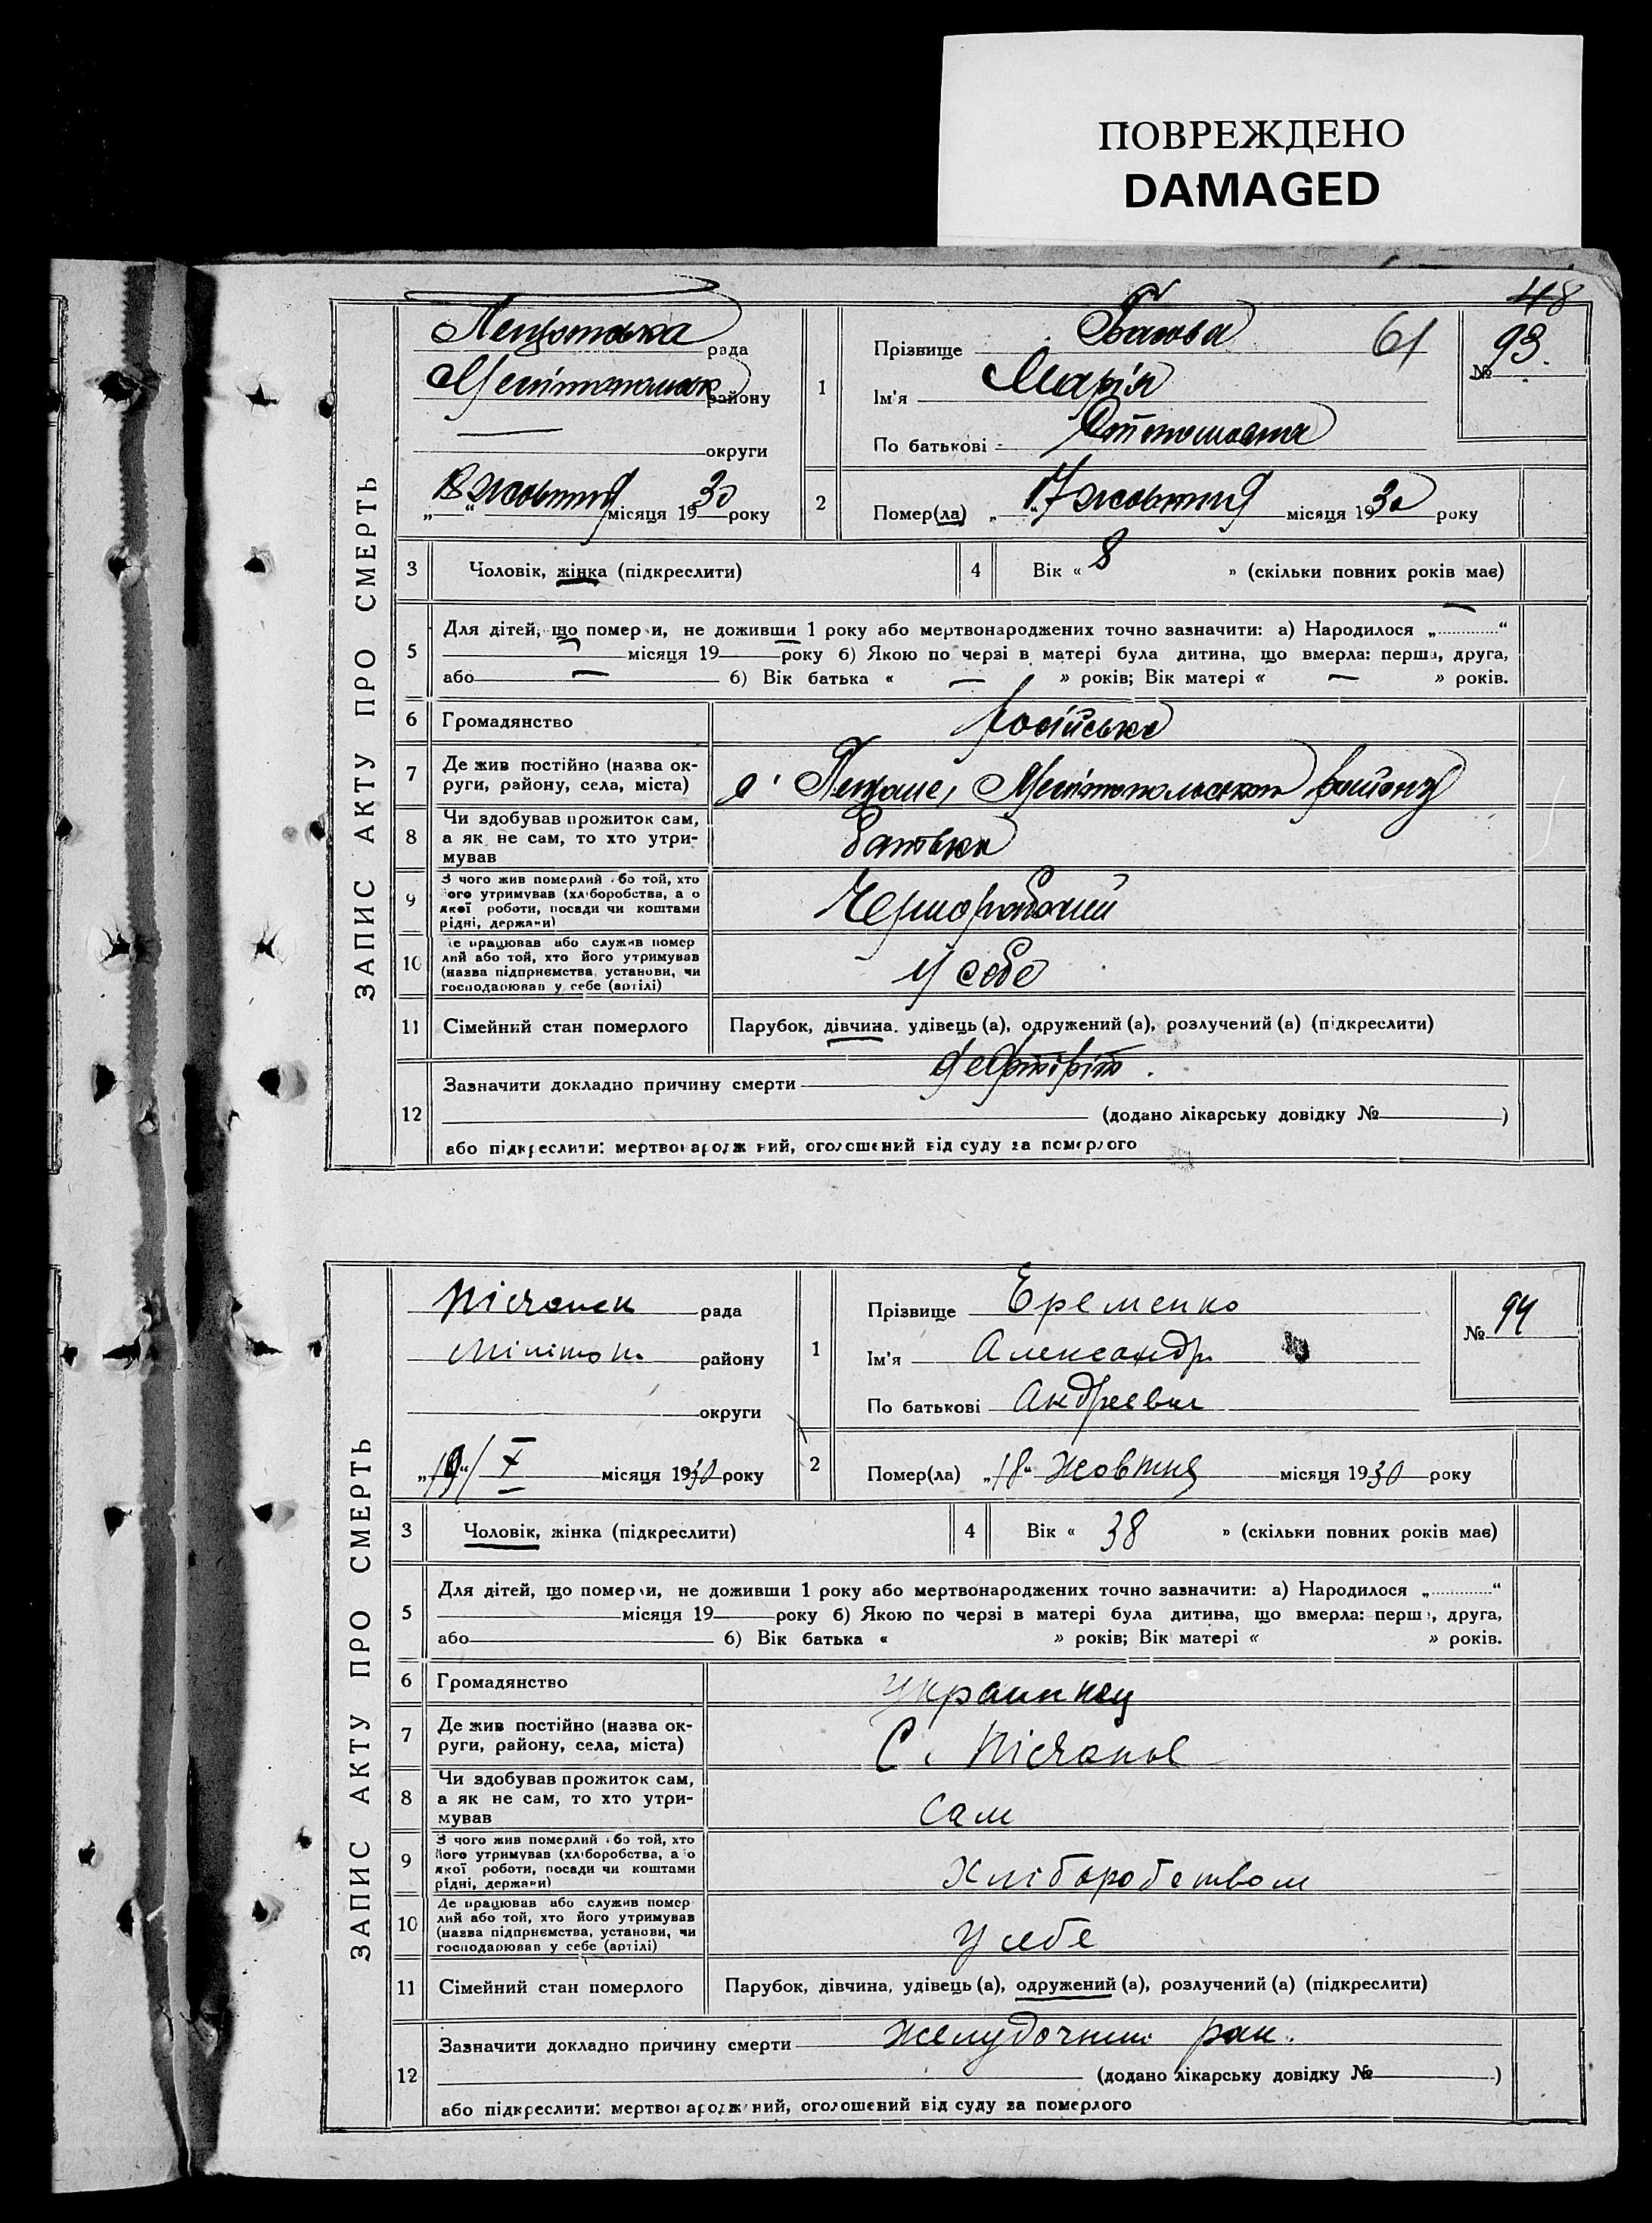 ПОВРЕЖДЕНО
DAMAGED
48
ЗАПИС АКТУ ПРО СМЕРТЬ
рада
району
округи
„18“ жовтня місяця 1930 року
1
Прізвище
61
Ім'я Марія
По батькові
№ 93.
2
Помер(ла) „17“ жовтня місяця 1930 року
3 Чоловік, жінка (підкреслити)
4 Вік « 8 » (скільки повних років має)
5 Для дітей, що померли, не доживши 1 року або мертвонароджених точно зазначити: а) Народилося „ “
місяця 19 року б) Якою по черзі в матері була дитина, що вмерла: перша, друга,
або б) Вік батька « — » років; Вік матері « — » років.
6 Громадянство російська
7 Де жив постійно (назва ок-
руги, району, села, міста)
району
8 Чи здобував прожиток сам,
а як не сам, то хто утри-
мував
батька
9 З чого жив померлий або той, хто
його утримував (хліборобства, а о
якої роботи, посади чи коштами
рідні, держави)
Чернорабочий
10 Де працював або служив помер
лий або той, хто його утримував
(назва підприємства, установи, чи
господарював у себе (артілі)
У себе
11 Сімейний стан померлого Парубок, дівчина, удівець (а), одружений (а), розлучений (а) (підкреслити)
12 Зазначити докладно причину смерти
(додано лікарську довідку № )
або підкреслити: мертвонароджений, оголошений від суду за померлого
ЗАПИС АКТУ ПРО СМЕРТЬ
Пісчанск рада
Мілітоп. району
округи
„19“/X місяця 1930 року
1
Прізвище Еременко
Ім'я Александр
По батькові Андреевич
№ 94
2
Помер(ла) „18“ Жовтня місяця 1930 року
3 Чоловік, жінка (підкреслити)
4 Вік « 38 » (скільки повних років має)
5 Для дітей, що померли, не доживши 1 року або мертвонароджених точно зазначити: а) Народилося „ “
місяця 19 року б) Якою по черзі в матері була дитина, що вмерла: перша, друга,
або б) Вік батька « » років; Вік матері « » років.
6 Громадянство украинец
7 Де жив постійно (назва ок-
руги, району, села, міста)
С. Пісчане
8 Чи здобував прожиток сам,
а як не сам, то хто утри-
мував
Сам
9 З чого жив померлий або той, хто
його утримував (хліборобства, а о
якої роботи, посади чи коштами
рідні, держави)
Хліборобством
10 Де працював або служив помер
лий або той, хто його утримував
(назва підприємства, установи, чи
господарював у себе (артілі)
У себе
11 Сімейний стан померлого Парубок, дівчина, удівець (а), одружений (а), розлучений (а) (підкреслити)
12 Зазначити докладно причину смерти Желудочний рак.
(додано лікарську довідку № )
або підкреслити: мертвонароджений, оголошений від суду за померлого